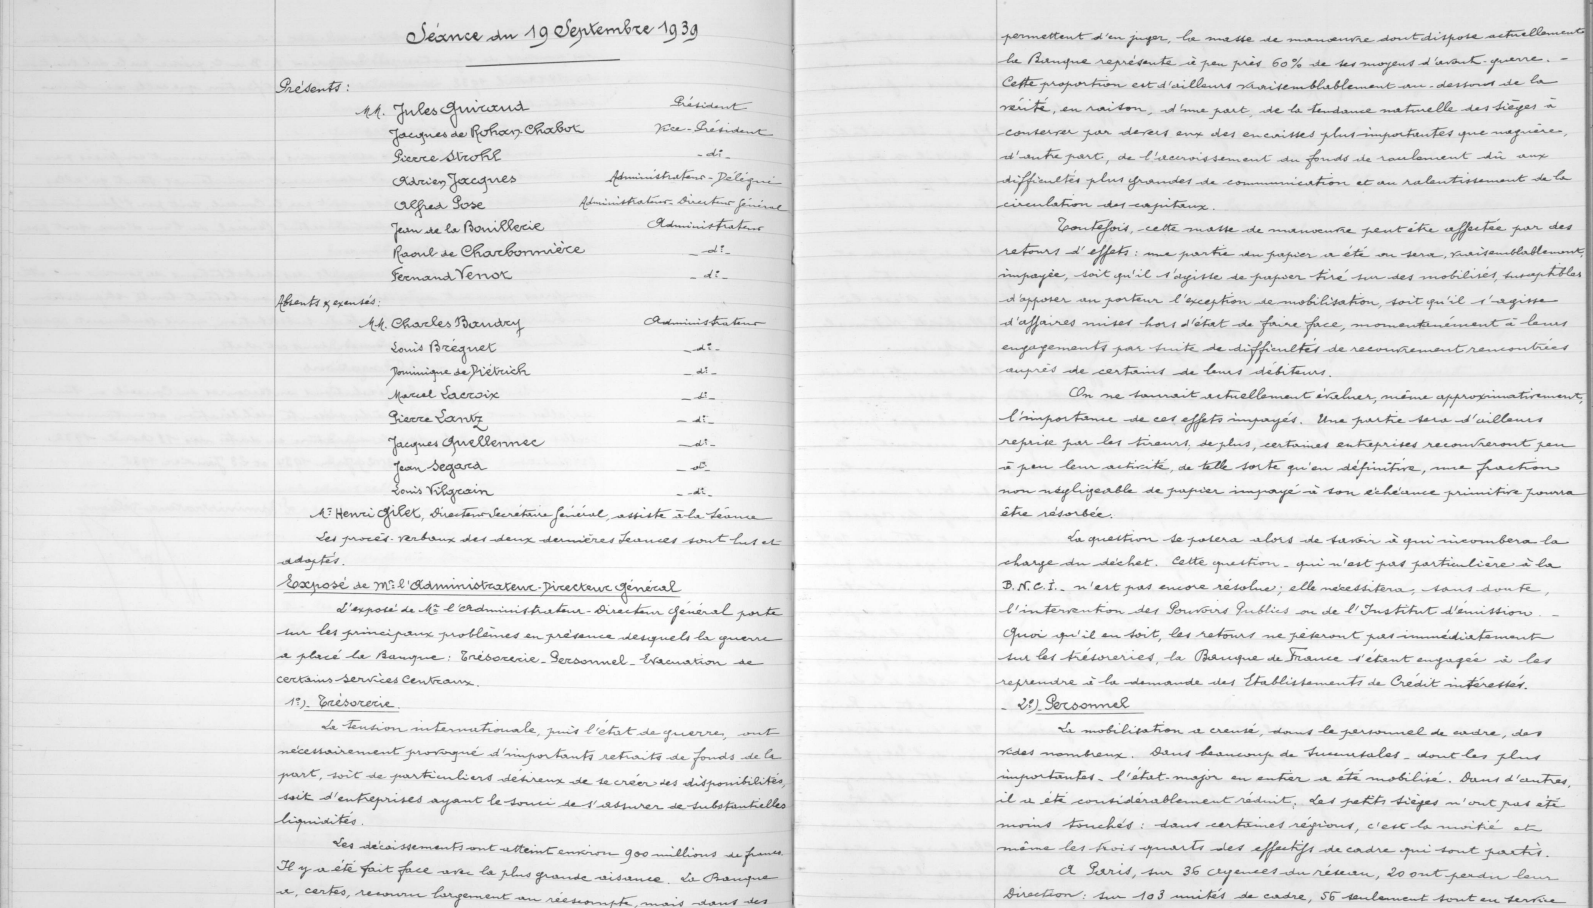 Séance du 19 Septembre 1939
Présents :
MM. Jules Guiraud Président
Jacques de Rohan-Chabot Vice-Président
Pierre Strohl - d° -
Adrien Jacques Administrateur-Délégué
Alfred Pose Administrateur-Directeur Général
Jean de la Bouillerie Administrateur
Raoul de Charbonnière - d° -
Fernand Venot - d° -
Absents & excusés :
MM. Charles Baudry Administrateur
Louis Bréguet - d° -
Dominique de Diétrich - d° -
Marcel Lacroix - d° -
Pierre Lantz - d° -
Jacques Quellennec - d° -
Jean Segard - d° -
Louis Vilgrain - d° -
Mr Henri Gilet, Directeur-Secrétaire Général, assiste à la Séance
Les procès-verbaux des deux dernières Séances sont lus et
adoptés.
Exposé de Mr l'Administrateur-Directeur Général
L'exposé de Mr l'Administrateur-Directeur Général porte
sur les principaux problèmes en présence desquels la guerre
a placé la Banque : Trésorerie - Personnel - Evacuation de
certains Services Centraux.
1°)- Trésorerie.
La tension internationale, puis l'état de guerre, ont
nécessairement provoqué d'importants retraits de fonds de la
part, soit de particuliers désireux de se créer des disponibilités,
soit d'entreprises ayant le souci de s'assurer de substantielles
liquidités.
Les décaissements ont atteint environ 900 millions de francs.
Il y a été fait face avec la plus grande aisance. La Banque
a, certes, recouru largement au réescompte, mais dans des
permettent d'en juger, la masse de manœuvre dont dispose actuellement
la Banque représente à peu près 60% de ses moyens d'avant-guerre. -
Cette proportion est d'ailleurs vraisemblablement au-dessous de la
vérité, en raison, d'une part, de la tendance naturelle des sièges à
conserver par devers eux des encaisses plus importantes que naguère,
d'autre part, de l'accroissement du fonds de roulement dû aux
difficultés plus grandes de communication et au ralentissement de la
circulation des capitaux.
Toutefois, cette masse de manœuvre peut être affectée par des
retours d'effets : une partie du papier a été ou sera, vraisemblablement,
impayée, soit qu'il s'agisse de papier tiré sur des mobilisés, susceptibles
d'opposer au porteur l'exception de mobilisation, soit qu'il s'agisse
d'affaires mises hors d'état de faire face, momentanément à leurs
engagements par suite de difficultés de recouvrement rencontrées
auprès de certains de leurs débiteurs.
On ne saurait actuellement évaluer, même approximativement,
l'importance de ces effets impayés. Une partie sera d'ailleurs
reprise par les tireurs, de plus, certaines entreprises recouvreront peu
à peu leur activité, de telle sorte qu'en définitive, une fraction
non négligeable de papier impayé à son échéance primitive pourra
être résorbée.
La question se posera alors de savoir à qui incombera la
charge du déchet. Cette question - qui n'est pas particulière à la
B.N.C.I. - n'est pas encore résolue ; elle nécessitera, sans doute,
l'intervention des Pouvoirs Publics ou de l'Institut d'émission. -
Quoi qu'il en soit, les retours ne pèseront pas immédiatement
sur les trésoreries, la Banque de France s'étant engagée à les
reprendre à la demande des Etablissements de Crédit intéressés.
- 2°)- Personnel
La mobilisation a creusé, dans le personnel de cadre, des
vides nombreux. Dans beaucoup de Succursales - dont les plus
importantes - l'état-major en entier a été mobilisé. Dans d'autres,
il a été considérablement réduit. Les petits sièges n'ont pas été
moins touchés : dans certaines régions, c'est la moitié et
même les trois quarts des effectifs de cadre qui sont partis.
A Paris, sur 36 agences du réseau, 20 ont perdu leur
Direction : sur 103 unités de cadre, 56 seulement sont en service